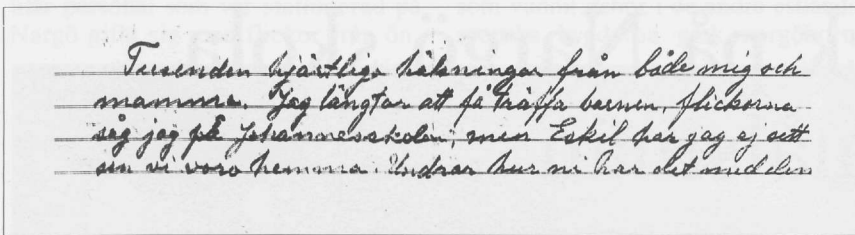 Tusenden hjärtliga hälsningar från både mig och
mamma. Jag längtar att få träffa barnen, flickorna
såg jag på Johannesskolan, men Eskil har jag ej sett
sen vi voro hemma. Undrar hur ni har det med den